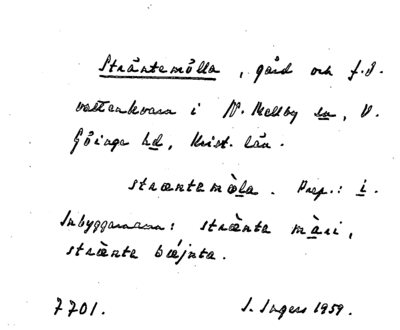 Sträntemölla, gård och f.d.
vattenkvarn i N. Mellby sn, V.
Göinge hd, Krist. län.
stræntemöla. Prep.: i.
Inbyggarnamn: strænta mari,
strænta bæjnta.
7701. I. Ingers 1959.